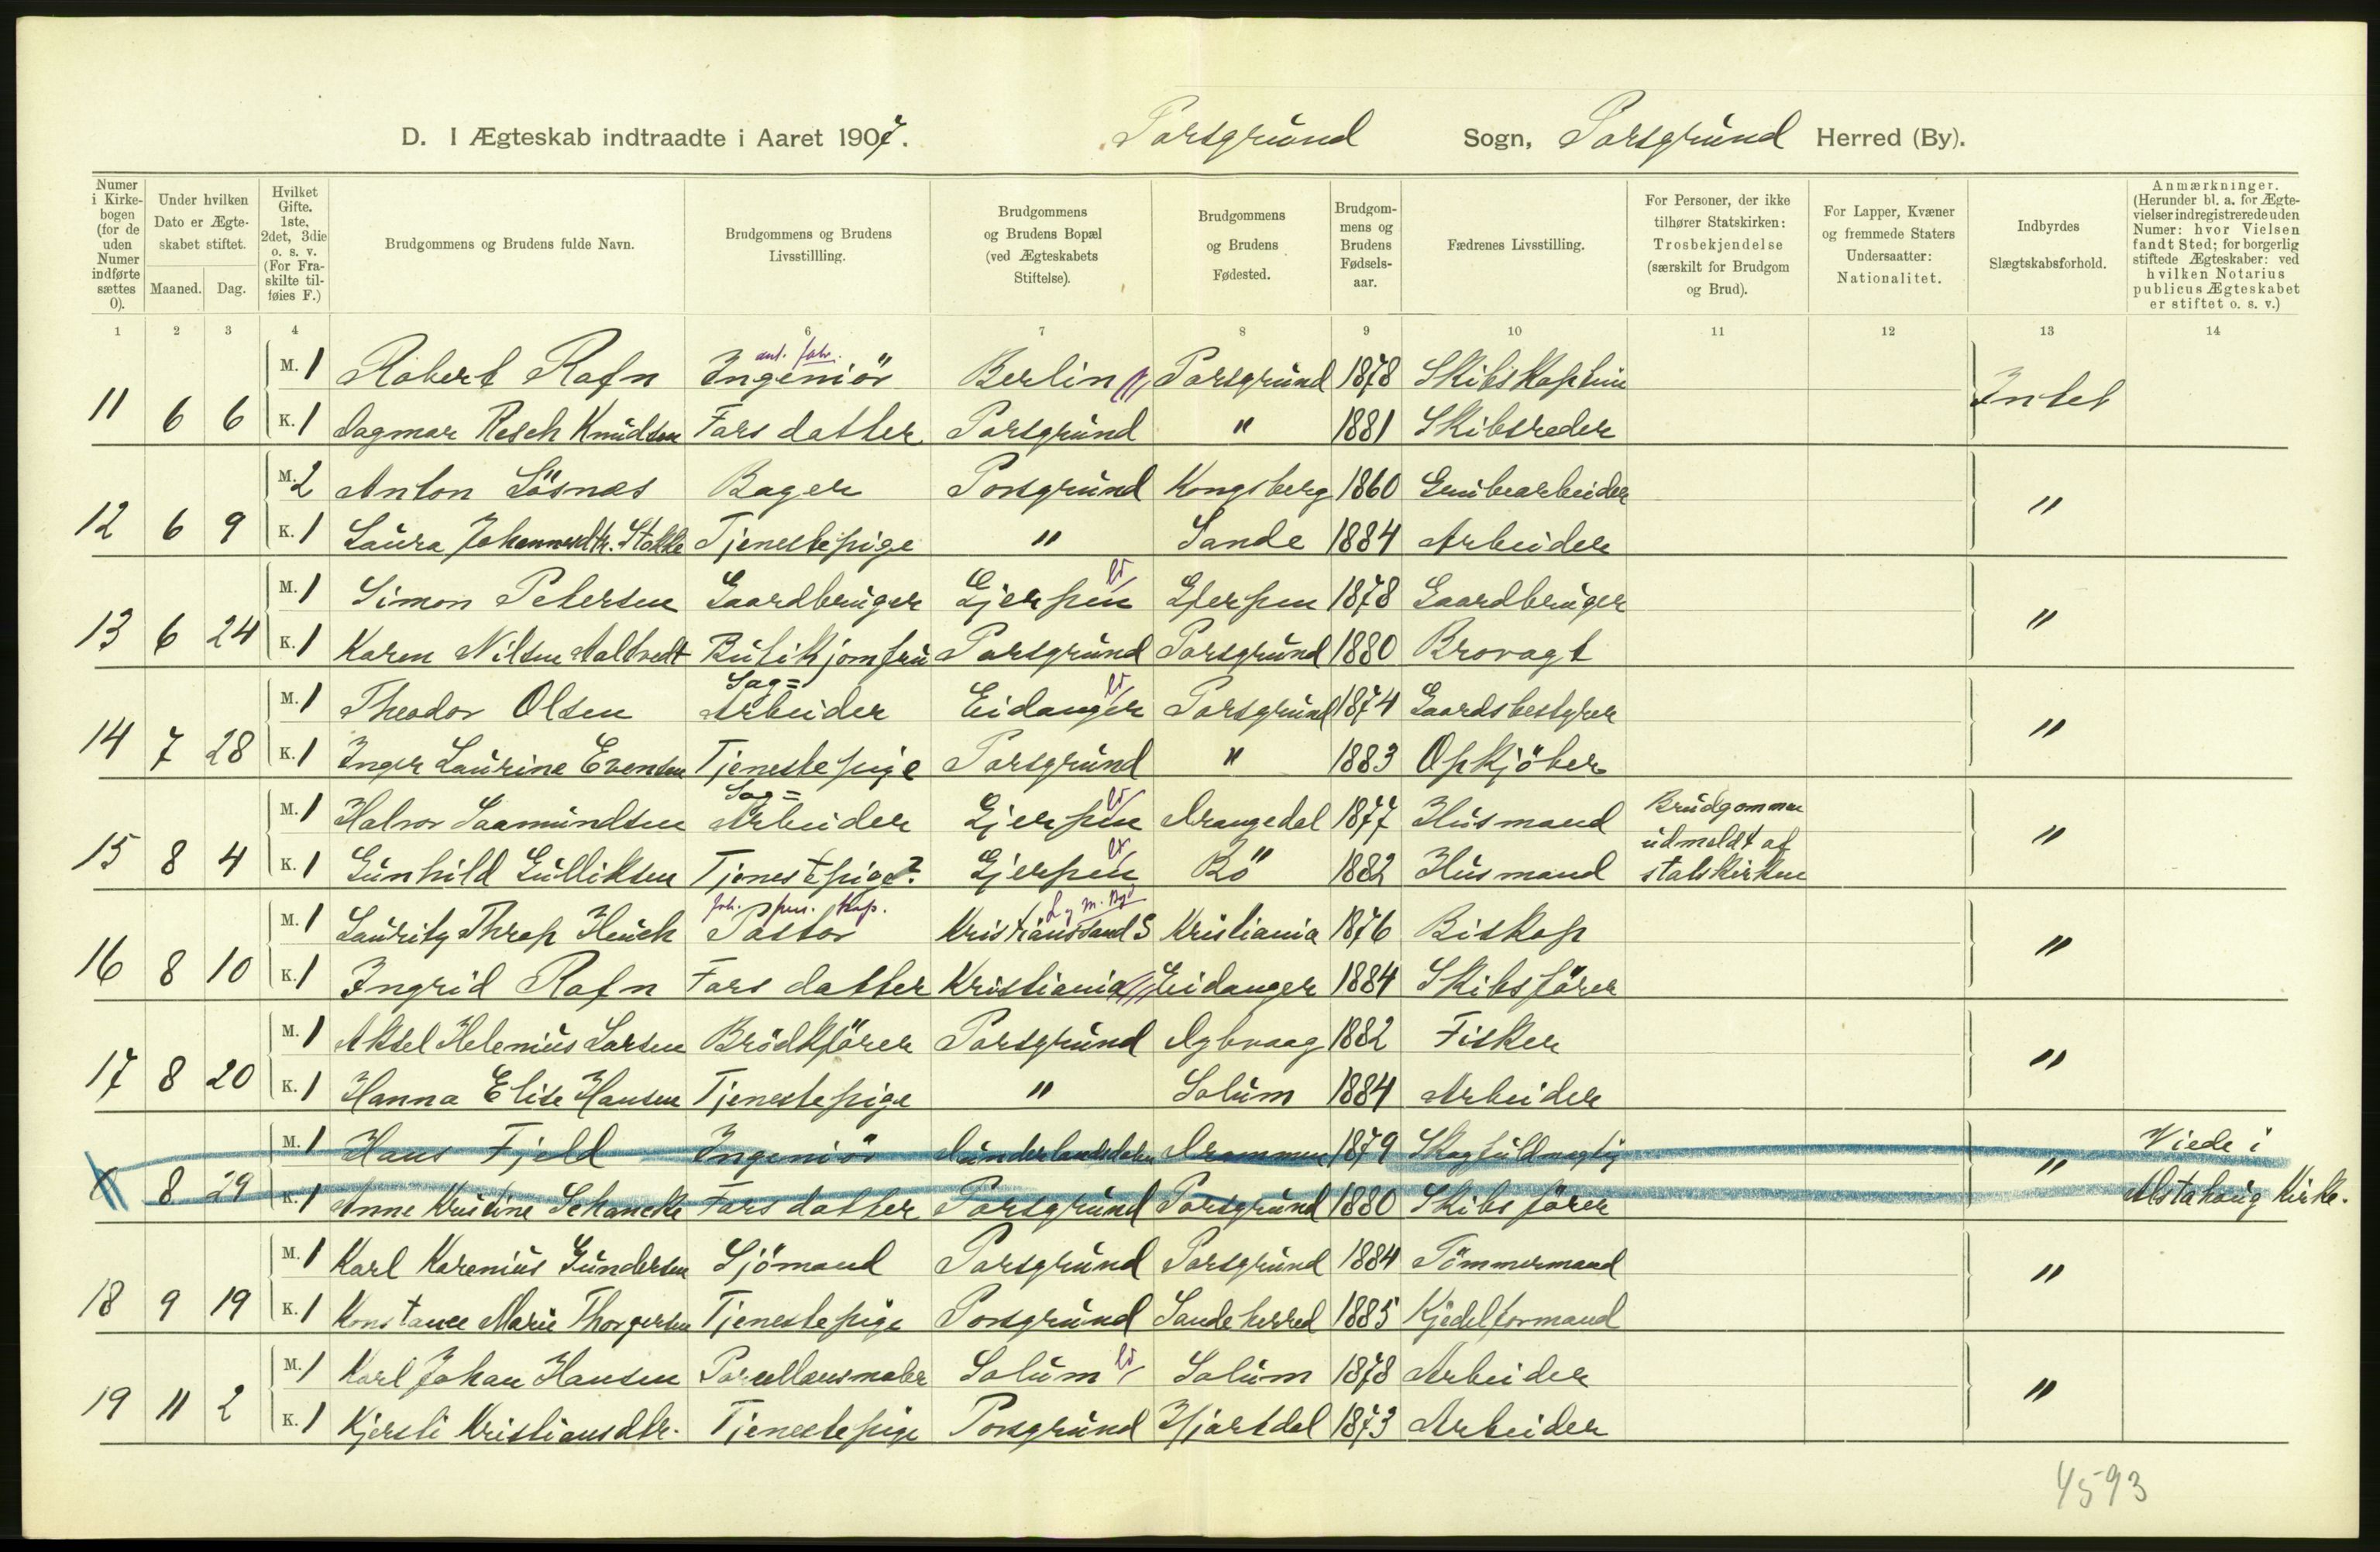 D. I Ægteskab indtraadte i Aaret 1907. Porsgrund Sogn, Porsgrund Herred (By).
Numer i Kirkebogen (for de uden Numer indførte sættes 0).
Under hvilken Dato er Ægteskabet stiftet.
Maaned. Dag.
Hvilket Gifte. 1ste, 2det, 3die o. s. v. (For Fraskilte tilføies F.)
Brudgommens og Brudens fulde Navn.
Brudgommens og Brudens Livsstillling.
Brudgommens og Brudens Bopæl (ved Ægteskabets Stiftelse).
Brudgommens og Brudens Fødested.
Brudgommens og Brudens Fødselsaar.
Fædrenes Livsstilling.
For Personer, der ikke tilhører Statskirken: Trosbekjendelse (særskilt for Brudgom og Brud).
For Lapper, Kvæner og fremmede Staters Undersaatter: Nationalitet.
Indbyrdes Slægtskabsforhold.
Anmærkninger. (Herunder bl. a. for Ægtevielser indregistrerede uden Numer: hvor Vielsen fandt Sted; for borgerlig stiftede Ægteskaber: ved hvilken Notarius publicus Ægteskabet er stiftet o. s. v.)
1 2 3 4 6 7 8 9 10 11 12 13 14
M. 1 Robert Rafn Ingeniör Berlin Porsgrund 1878 Skibskaptein Intet
11 6 6 K. 1 Dagmar Resch Knudsen Fars datter Porsgrund " 1881 Skibsreder
M. 2 Anton Lösnæs Bager Porsgrund Kongsberg 1860 Grubearbeider "
12 6 9 K. 1 Laura Johannesdtr. Stokke Tjenestepige " Sande 1884 Arbeider
M. 1 Simon Petersen Gaardbruger Gjerpen Gjerpen 1878 Gaardbruger "
13 6 24 K. 1 Karen Nilsen Aaltvedt Butikjomfru Porsgrund Porsgrund 1880 Brovagt
Sag=
M. 1 Theodor Olsen Arbeider Eidanger Porsgrund 1874 Gaardsbestyrer "
14 7 28 K. 1 Inger Laurine Evensen Tjenestepige Porsgrund " 1883 Opkjöber
Sag=
M. 1 Halvor Saamundsen Arbeider Gjerpen Drangedal 1877 Husmand Brudgommen "
udmeldt af
15 8 4 K. 1 Gunhild Gulliksen Tjenestepige? Gjerpen Bö 1882 Husmand statskirken
M. 1 Lauritz Thrap Heuch Pastor Kristiansand S Kristiania 1876 Biskop "
16 8 10 K. 1 Ingrid Rafn Fars datter Kristiania Eidanger 1884 Skibsförer
M. 1 Aksel Helenius Larsen Brödkjörer Porsgrund Dybvaag 1882 Fisker "
17 8 20 K. 1 Hanna Elise Hansen Tjenestepige " Solum 1884 Arbeider
M. 1 Hans Fjeld Ingeniör Sunderlandsdalen Drammen 1879 Skogfuldmægtig " Viede i
8 29 K. 1 Anne Kristine Schancke Fars datter Porsgrund Porsgrund 1880 Skibsförer Alstahaug Kirke.
M. 1 Karl Karenius Gundersen Sjömand Porsgrund Porsgrund 1884 Tömmermand "
18 9 19 K. 1 Konstance Marie Thorgersen Tjenestepige Porsgrund Sandeherred 1885 Kjedelformand
M. 1 Karl Johan Hansen Porcellænsmaler Solum Solum 1878 Arbeider "
19 11 2 K. 1 Kjersti Kristiansdtr. Tjenestepige Porsgrund Hjartdal 1873 Arbeider
4593